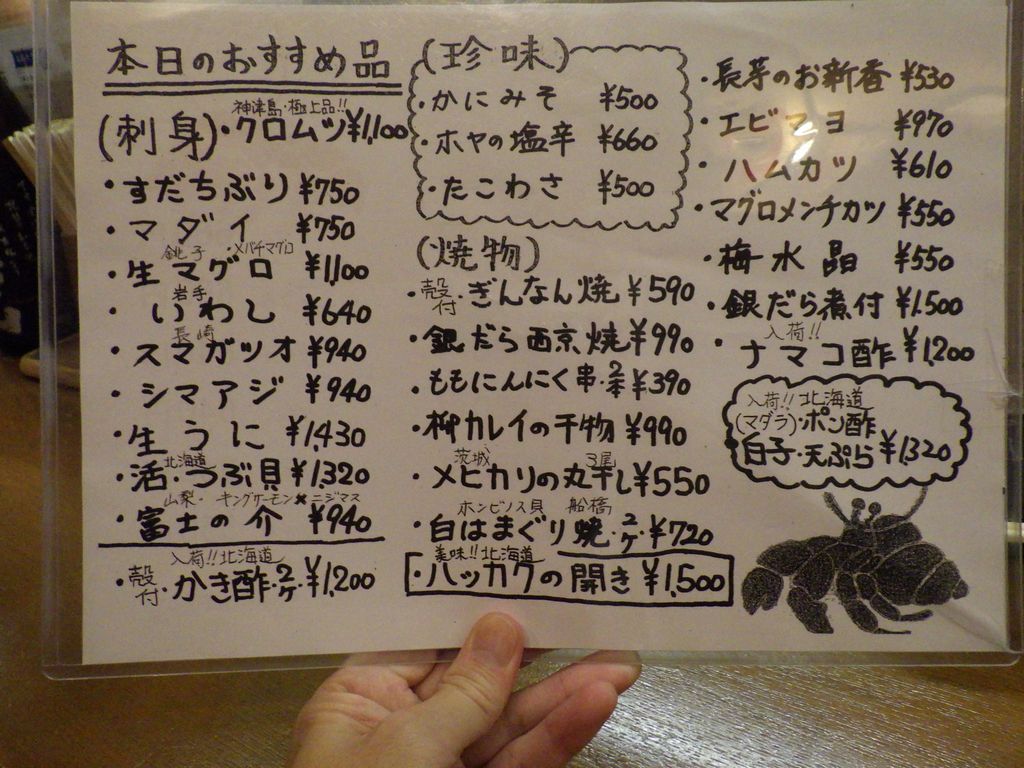 本日のおすすめ品
神津島・極上品!!
(刺身)・クロムツ ¥1,100
・すだちぶり ¥750
・マダイ ¥750
銚子・メバチマグロ
・生マグロ ¥1,100
岩手
・いわし ¥640
長崎
・スマガツオ ¥940
・シマアジ ¥940
・生うに ¥1,430
北海道
・活・つぶ貝 ¥1,320
山梨・キングサーモン×ニジマス
・富士の介 ¥940
入荷!!北海道
・殻付・かき酢・2ヶ・¥1,200
(珍味)
・かにみそ ¥500
・ホヤの塩辛 ¥660
・たこわさ ¥500
(焼物)
・殻付・ぎんなん焼 ¥590
・銀だら西京焼 ¥990
・ももにんにく串・2本 ¥390
・柳カレイの干物 ¥990
茨城 3尾
・メヒカリの丸干し ¥550
ホンビノス貝 船橋
・白はまぐり焼・2ヶ・¥720
美味!!北海道
・ハッカクの開き ¥1,500
・長芋のお新香 ¥530
・エビマヨ ¥970
・ハムカツ ¥610
・マグロメンチカツ ¥550
・梅水晶 ¥550
・銀だら煮付 ¥1,500
入荷!!
・ナマコ酢 ¥1,200
入荷!!北海道
(マダラ)・ポン酢
白子・天ぷら ¥1,320